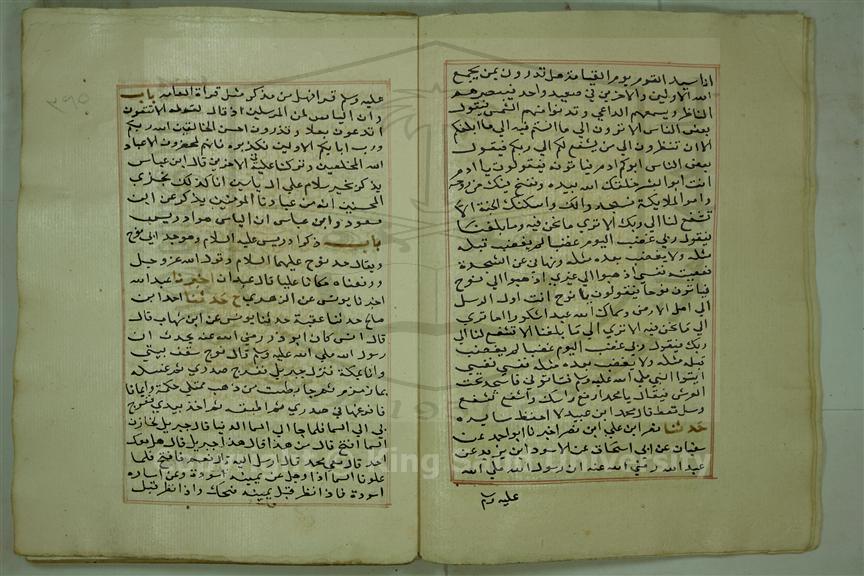 انا سيد القوم يوم القيامة هل تدرون بمن يجمع
الله الاولين والاخرين في صعيد واحد فيبصرهم
الناظر ويسمعهم الداعي وتدنوا منهم الشمس فيقول
بعض الناس الا ترون الي ما انتم فيه الي ما بلغكم
الا تنظرون الي من يشفع لكم الي ربكم فيقول
بعض الناس ابوكم ادم فياتونه فيقولون يا ادم
انت ابو البشر خلقك الله بيده ونفخ فيك من روحه
وامر الملايكة فسجدوا لك واسكنك الجنة الا
تشفع لنا الي ربك الا تري ما نحن فيه وما بلغنا
فيقول ربي غضب اليوم غضبا لم يغضب قبله
مثله ولا يغضب بعده مثله ونهاني عن الشجرة
فعصيت نفسي اذهبوا الي غيري اذهبوا الي نوح
فياتون نوحا فيقولون يا نوح انت اول الرسل
الي اهل الارض وسماك الله عبدا شكورا اما تري
الي ما نحن فيه الا تري الي ما بلغنا الا تشفع لنا الي
ربك فيقول ربي غضب اليوم غضبا لم يغضب
قبله مثله ولا يغضب بعده مثله نفسي نفسي
ايتوا النبي صلي الله عليه وسلم فياتوني فاسجد تحت
العرش فيقال يا محمد ارفع راسك واشفع تشفع
وسل تعط قال محمد ابن عبيد لا احفظ سايره
حدثنا نصر ابن علي ابن نصر اخبرنا ابو احمد عن
سفيان عن ابي اسحاق عن الاسود ابن يزيد عن
عبد الله رضي الله عنه ان رسول الله صلي الله
عليه وسلم
عليه وسلم قرا فهل من مدكر مثل قراة العامة باب
وان الياس لمن المرسلين اذ قال لقومه الا تتقون
اتدعون بعلا وتذرون احسن الخالقين الله ربكم
ورب ابايكم الاولين فكذبوه فانهم لمحضرون الا عباد
الله المخلصين وتركنا عليه في الاخرين قال ابن عباس
يذكر بخير سلام علي ال ياسين انا كذلك نجزي
المحسنين انه من عبادنا المومنين يذكر عن ابن
مسعود وابن عباس ان الياس هو ادريس
باب ذكر ادريس عليه السلام وهو جد ابي نوح
ويقال جد نوح عليهما السلام وقول الله عز وجل
ورفعناه مكانا عليا قال عبدان اخبرنا عبد الله
اخبرنا يونس عن الزهري ح حدثنا احمد ابن
صالح حدثنا عنبسة حدثنا يونس عن ابن شهاب قال
قال انس كان ابو ذر رضي الله عنه يحدث ان
رسول الله صلي الله عليه وسلم قال فرج سقف بيتي
وانا بمكة فنزل جبريل ففرج صدري ثم غسله
بماء زمزم ثم جا بطست من ذهب ممتلي حكمة وايمانا
فافرغها في صدري ثم اطبقه ثم اخذ بيدي فعرج
بي الي السما فلما جا الي السما الدنيا قال جبريل لخازن
السما افتح قال من هذا قال هذا جبريل قال هل معك
احد قال معي محمد قال ارسل اليه قال نعم فافتح فلما
علونا السما اذا رجل عن يمينه اسودة وعن يساره
اسودة فاذا نظر قبل يمينه ضحك واذا نظر قبل